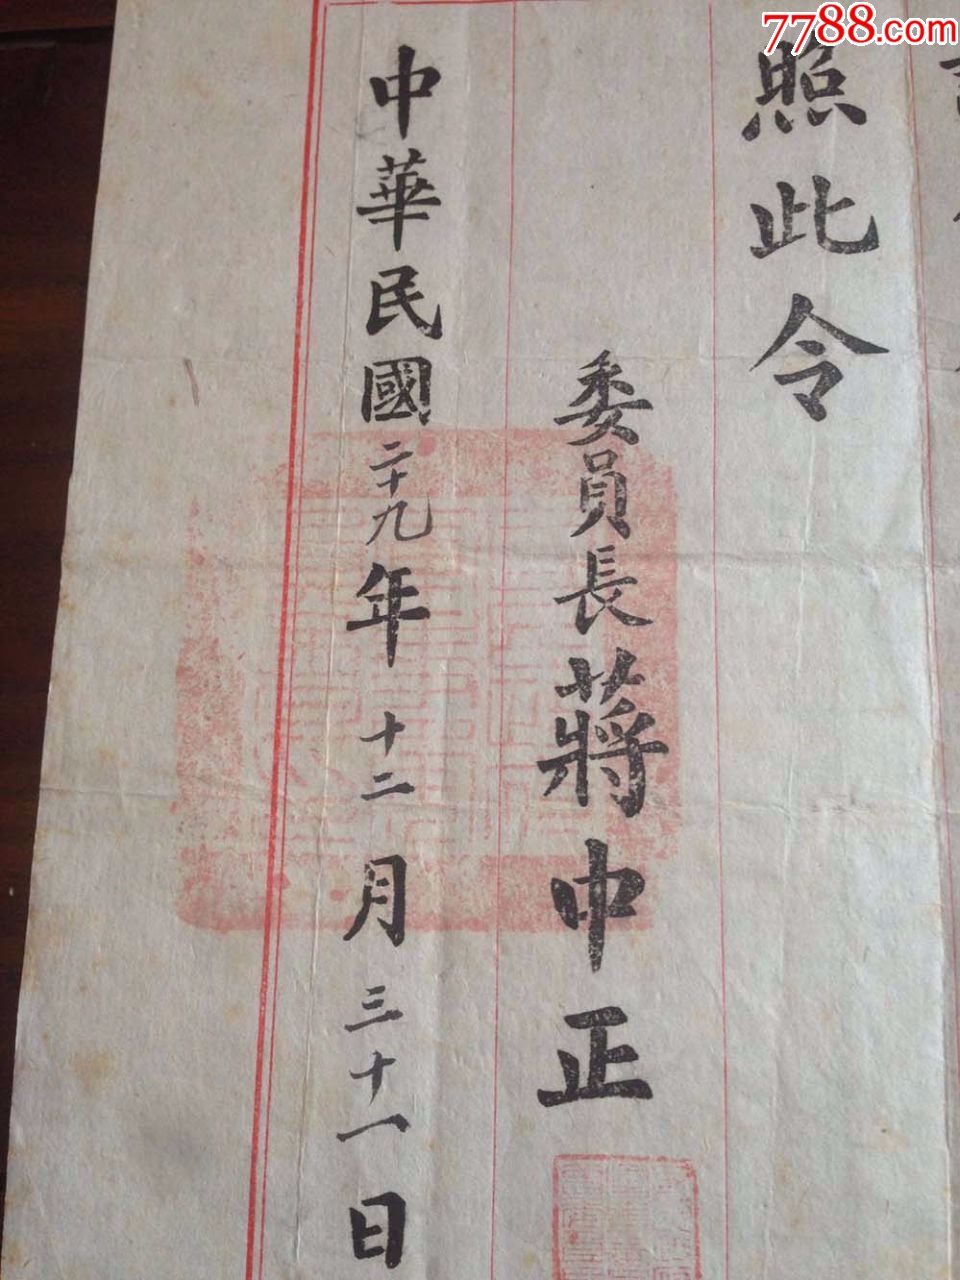 7788.com
照此令
委員長蔣中正
中華民國二十九年十二月三十一日